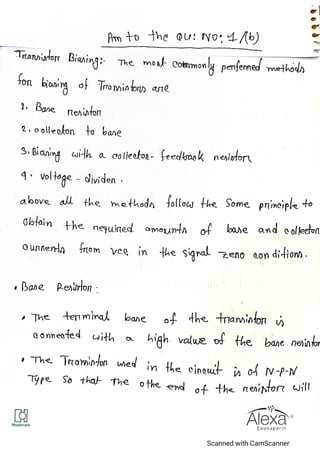 Ans to the QU: NO: 1/(b)
Transistor Biasing:- The most commonly performed methods
for biasing of Transistors are
1. Base resistor
2. collector to base
3. Biasing with a collector-feedback resistor
4. voltage-divider.
above all the methods follow the same principle to
obtain the required amounts of base and collector
currents from vcc in the signal zero conditions.
• Base Resistor:
• The terminal base of the transistor is
connected with a high value of the base resistor
• The Transistor used in the circuit is of N-P-N
Type so that the othe end of the resistor will
Healthcare
Alexa
Esoxaparin
Scanned with CamScanner